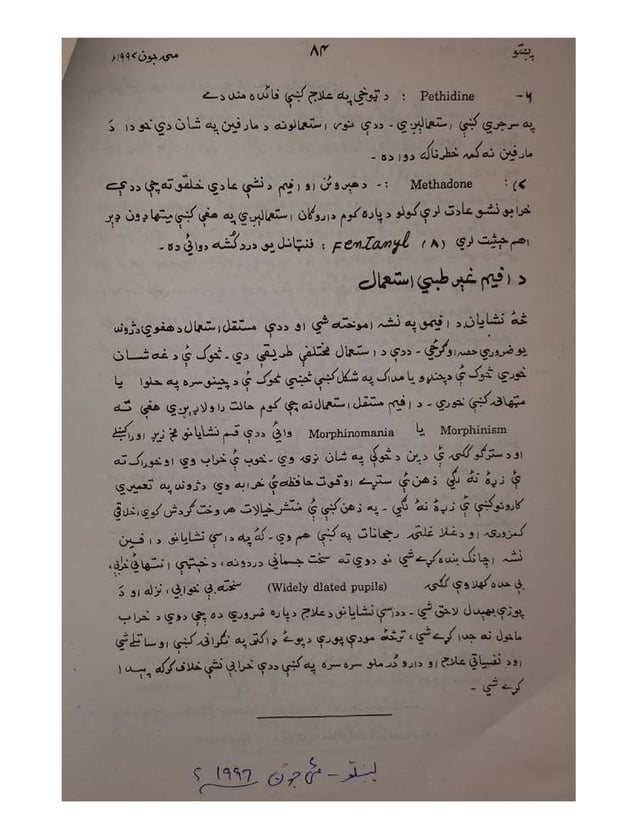 پښتو ۸۴ مئی جون ۱۹۹۷ء
۶- Pethidine : د ټوخي په علاج کښې فائده مند دے
په سرجري کښې استعمالېږي - ددې مونږ استعمالونه د مارفين په شان دي خو دا د
مارفين نه کمه خطرناکه دوا ده -
۷) : Methadone :- د هېروئن او افيم د نشې عادي خلقو ته چې ددې
خرابو نشو عادت لري کولو دپاره کوم داروګان استعمالېږي په هغې کښې ميتهاډون ډېر
اهم حيثيت لري (۸) Fentanyl : فنټانل يو درد کُشه دوائي ده -
د افيم غېر طبي استعمال
څۀ نشايان د افيمو په نشه اموخته شي او ددې مستقل استعمال د هغوي د ژوند
يو ضروري حصه اوګرځي - ددې د استعمال مختلفې طريقې دي - څوک ئې د غه شان
خوري څوک ئې د چنډو يا مداک په شکل کښې څښي څوک ئې د چينو سره په حلوا يا
مټهائي کښې خوري - د افيم مستقل استعمال نه چې کوم حالت راولاړېږي هغې ته
Morphinism يا Morphinomania وائي ددې قسم نشايانو مخ زېړ او راکښلے
او د سترګو ککي ئې د پن د څوکې په شان نرۍ وي - خوب ئې خراب وي او خوراک ته
ئې زړۀ نۀ کېږي ذهن ئې ستړے او قوت حافظه ئې خرابه وي د ژوند په تعميري
کارونو کښې ئې زړۀ نۀ لګي - په ذهن کښې ئې منتشر خيالات هر وخت ګردش کوي اخلاقي
کمزوري او د غلا غلتۍ رجحانات په کښې هم وي - کۀ په داسې نشايانو د افين
نشه اچانک بنده کړے شي نو دوي ته سخت جسماني دردونه، د خېټې انتهائي خرابي،
بې حده کهلاوې ککي (Widely dlated pupils) سخته بې خوابي، نزله او د
پوزې بهېدل لاحق شي - د داسې نشايانو د علاج دپاره ضروري ده چې دوي د خراب
ماحول نه جدا کړے شي، ترڅۀ مودې پورې د يوۀ ډاکټر په نګرانۍ کښې اوساتلے شي
او د نفسياتي علاج او دارو درملو سره سره په کښې ددې خرابې نشې خلاف کرکه پېدا
کړے شي -
پښتو - مئی جون ۱۹۹۷ء